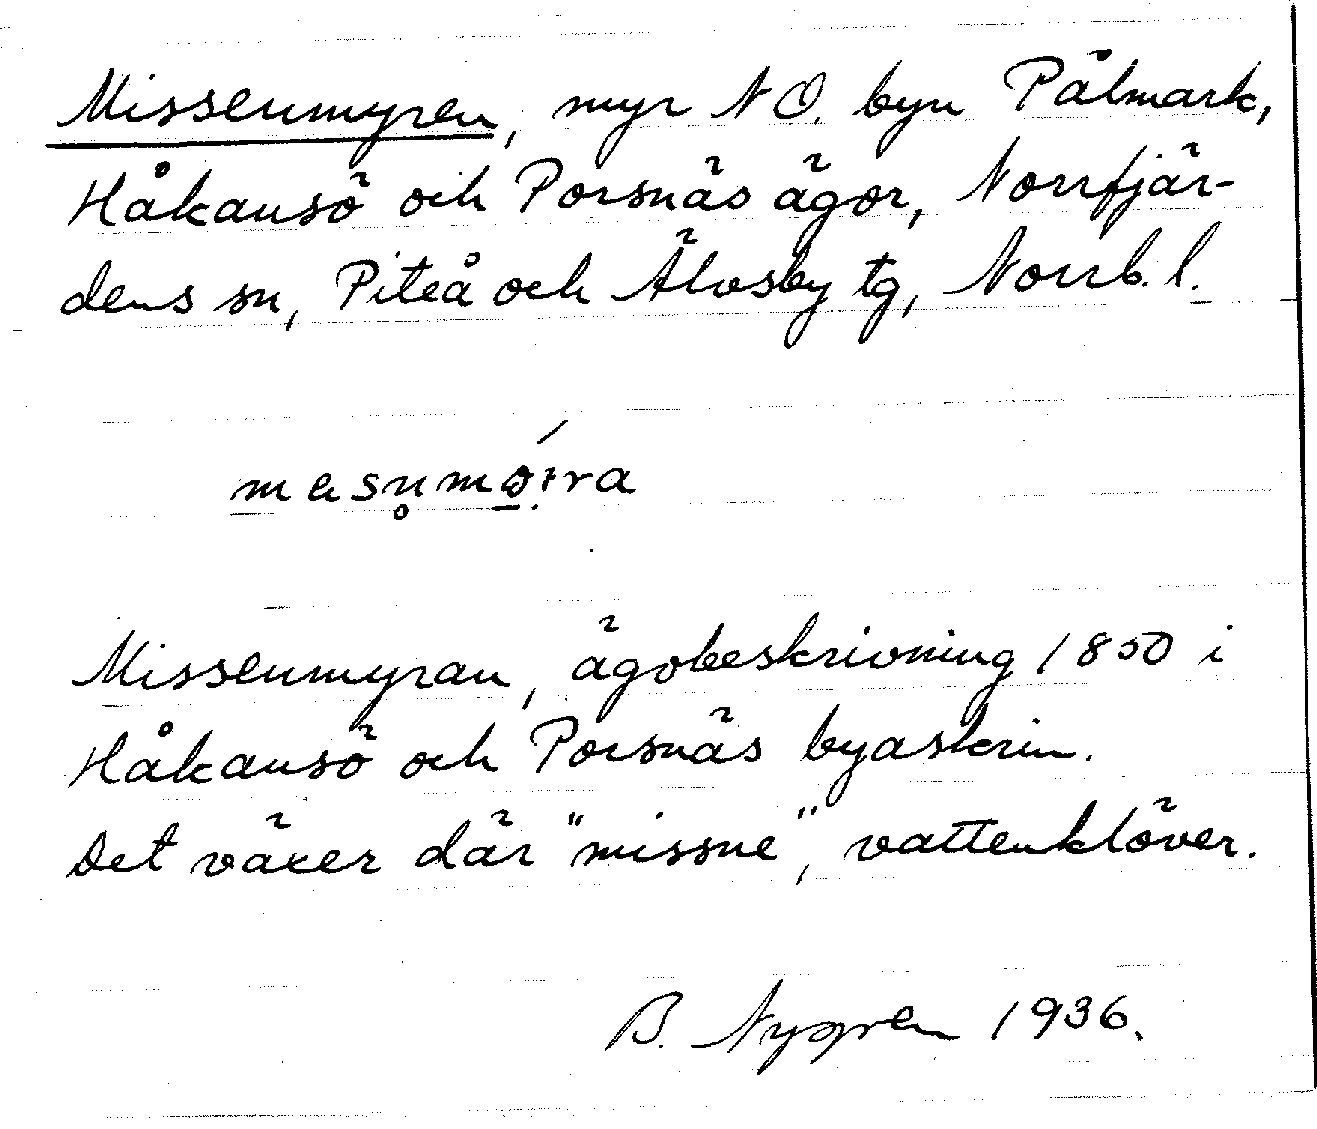 Missenmyren, myr NO. byn Pålmark,
Håkansö och Porsnäs ägor, Norrfjär-
dens sn, Piteå och Älvsby tg, Norrb. l.
Missenmyran, ägobeskrivning 1850 i
Håkansö och Porsnäs byaskrin.
Det växer där "missne", vattenklöver.
B. Nygren 1936.